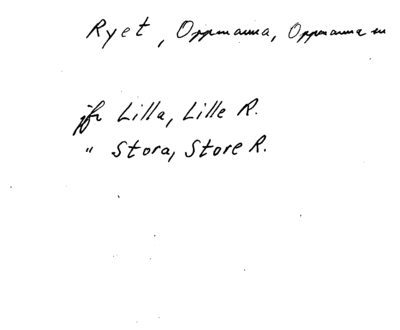 Ryet, Oppmanna, Oppmanna sn
jfr Lilla, Lille R.
" Stora, Store R.